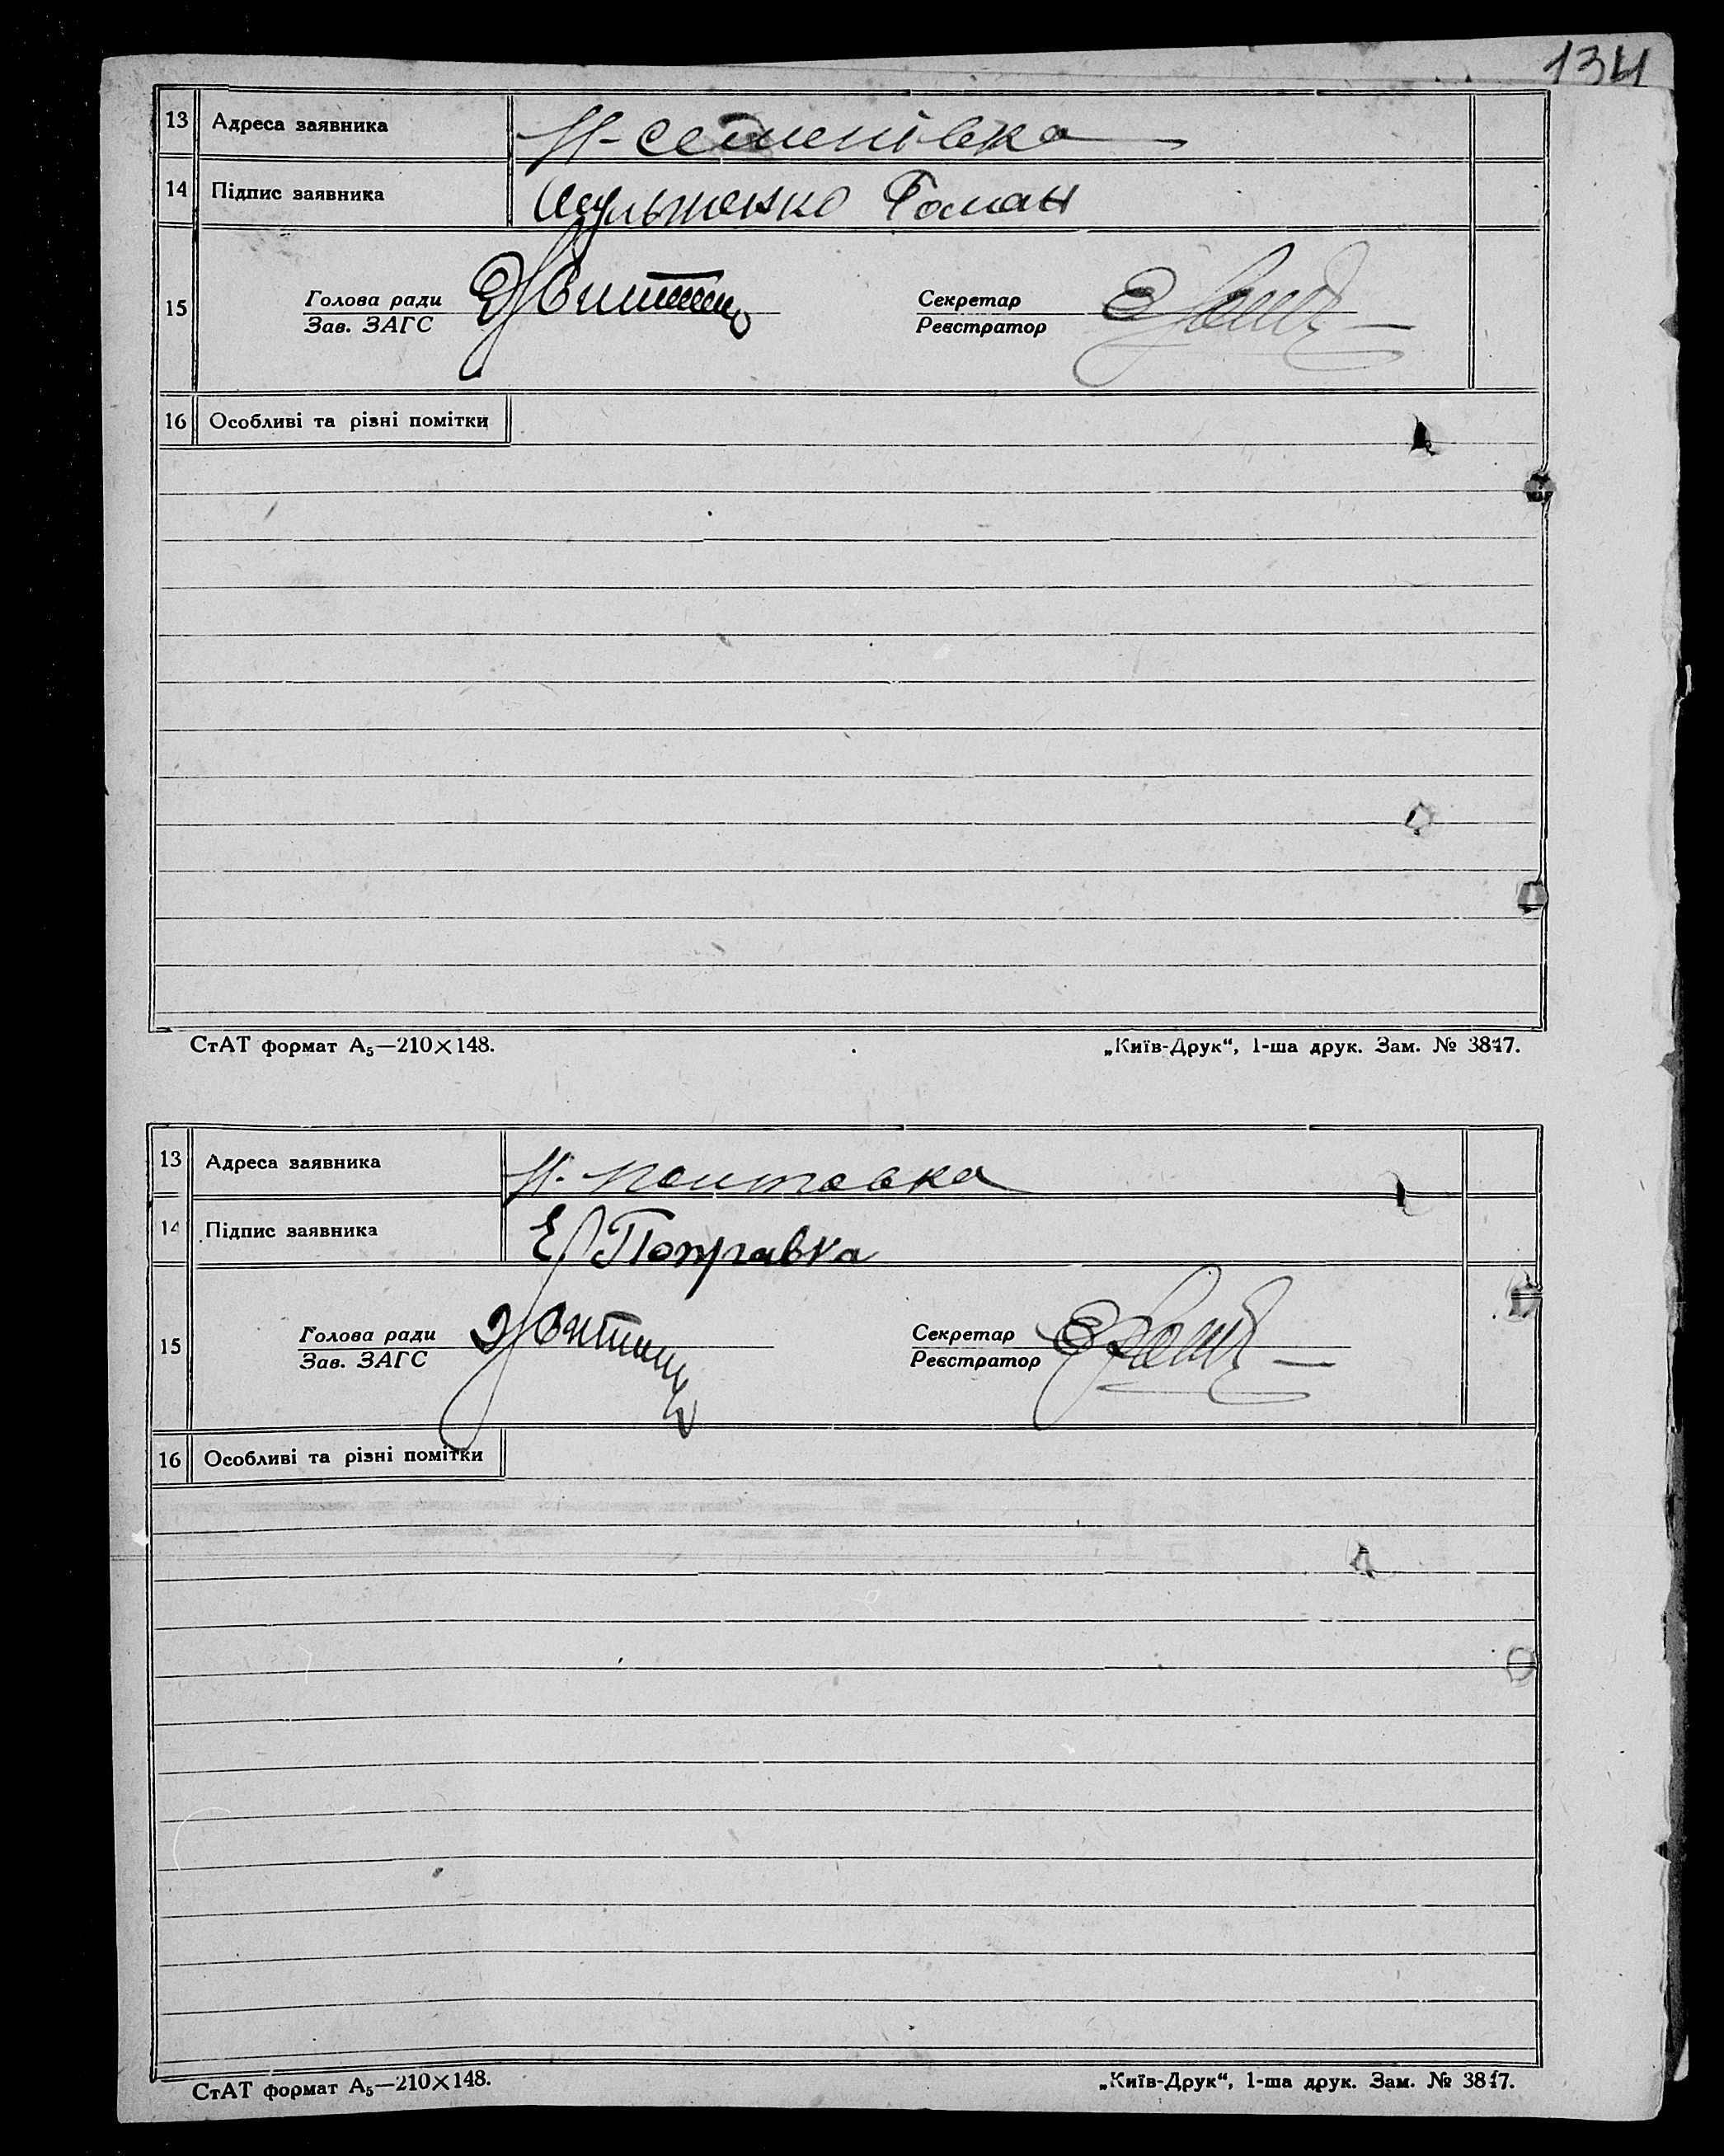 134
13 Адреса заявника Н-Семенівка
14 Підпис заявника Роман
15 Голова ради Секретар
Зав. ЗАГС Реєстратор
16 Особливі та різні помітки
СтАТ формат А₅—210×148. „Київ-Друк“, 1-ша друк. Зам. № 3847.
13 Адреса заявника Н-
14 Підпис заявника Е Поправка
15 Голова ради Секретар
Зав. ЗАГС Реєстратор
16 Особливі та різні помітки
СтАТ формат А₅—210×148. „Київ-Друк“, 1-ша друк. Зам. № 3847.